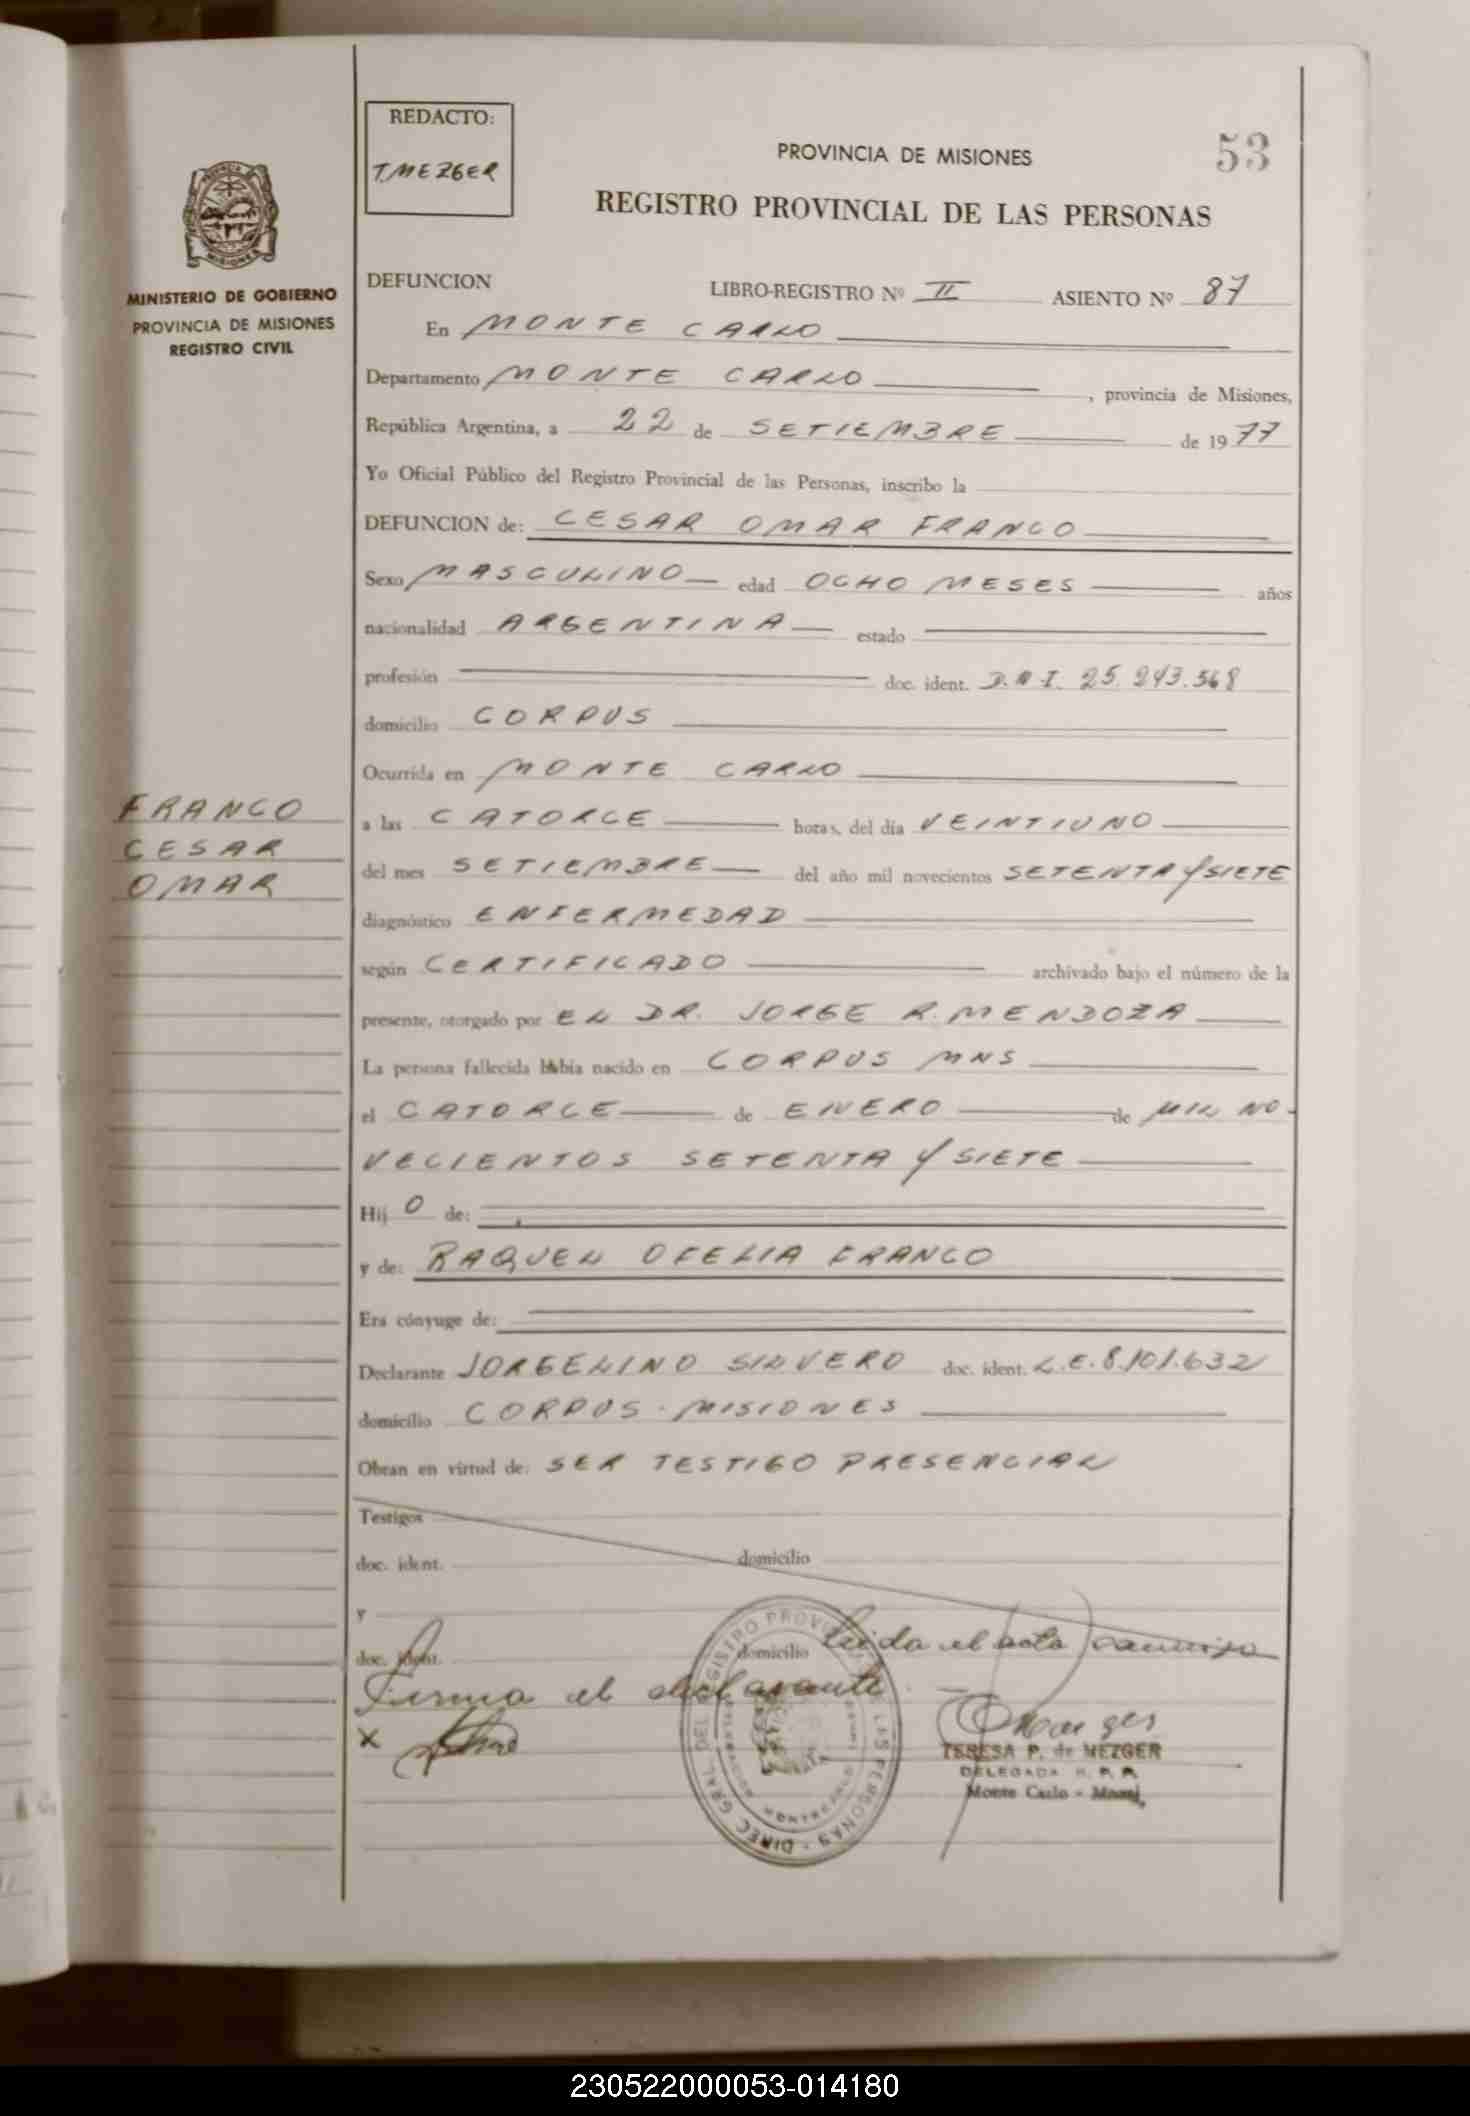 REDACTO:
T. MEZGER
PROVINCIA DE MISIONES
53
REGISTRO PROVINCIAL DE LAS PERSONAS
MINISTERIO DE GOBIERNO
PROVINCIA DE MISIONES
REGISTRO CIVIL
DEFUNCION LIBRO-REGISTRO Nº II ASIENTO Nº 87
En MONTE CARLO
Departamento MONTE CARLO, provincia de Misiones,
República Argentina, a 22 de SETIEMBRE de 1977
Yo Oficial Público del Registro Provincial de las Personas, inscribo la
DEFUNCION de: CESAR OMAR FRANCO
Sexo MASCULINO edad OCHO MESES años
nacionalidad ARGENTINA estado
profesión doc. ident. D.N.I. 25.243.568
domicilio CORPUS
Ocurrida en MONTE CARLO
FRANCO
CESAR
OMAR
a las CATORCE horas, del día VEINTIUNO
del mes SETIEMBRE del año mil novecientos SETENTA Y SIETE
diagnóstico ENFERMEDAD
según CERTIFICADO archivado bajo el número de la
presente, otorgado por EL DR. JORGE R. MENDOZA
La persona fallecida había nacido en CORPUS MNS
el CATORCE de ENERO de MIL NO-
VECIENTOS SETENTA Y SIETE
Hij O de:
y de: RAQUEL OFELIA FRANCO
Era cónyuge de:
Declarante JORGELINO SILVERO doc. ident. L.E. 8.101.632
domicilio CORPUS - MISIONES
Obran en virtud de: SER TESTIGO PRESENCIAL
Testigos
doc. ident. domicilio
y
doc. ident. domicilio Leida el acta
Firma el declarante.
X
TERESA P. de MEZGER
DELEGADA R. P. P.
Monte Carlo - Mnes.
DIREC. GRAL. DEL REGISTRO PROVINCIAL DE LAS PERSONAS
230522000053-014180